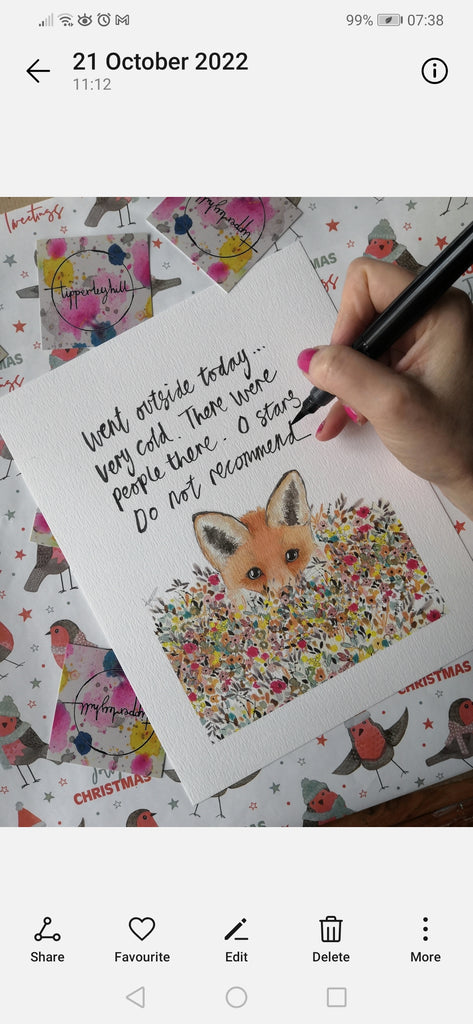 99% 07:38
21 October 2022
11:12
Tweetings
tipperleyhill
tipperleyhill
MAS
Went outside today...
very cold. There were
people there. 0 stars
Do not recommend
tipperleyhill
CHRISTMAS
CHRISTMAS
Share Favourite Edit Delete More